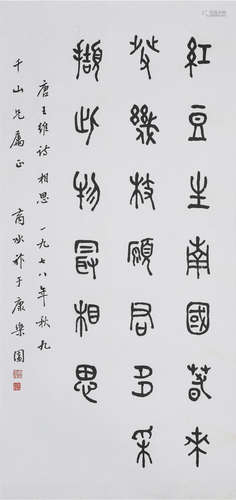 紅豆生南國春來
發幾枝願君多采
擷此物最相思
唐王維詩相思 一九七八年秋九
千山兄屬正 商承祚于康樂園